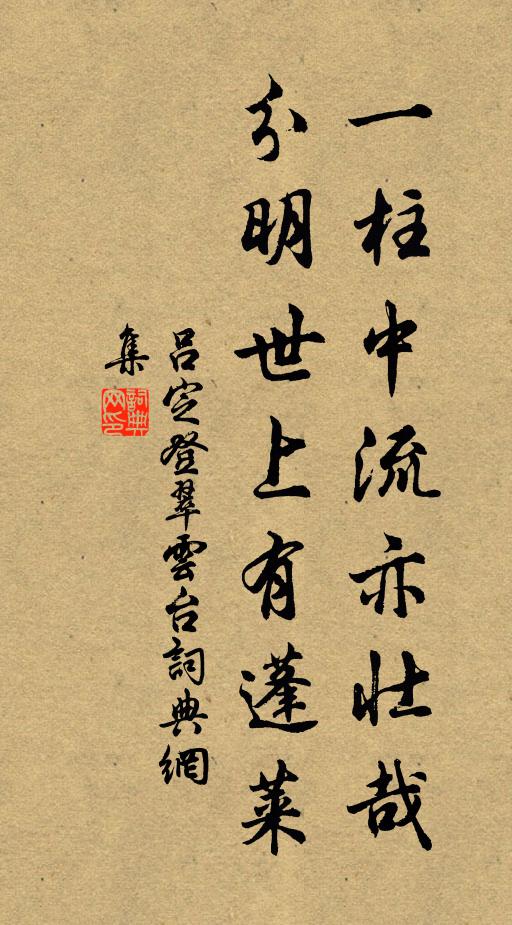 一柱中流亦壯哉
分明世上有蓬萊
吕定登翠雲台詞典網
集
詞典網印